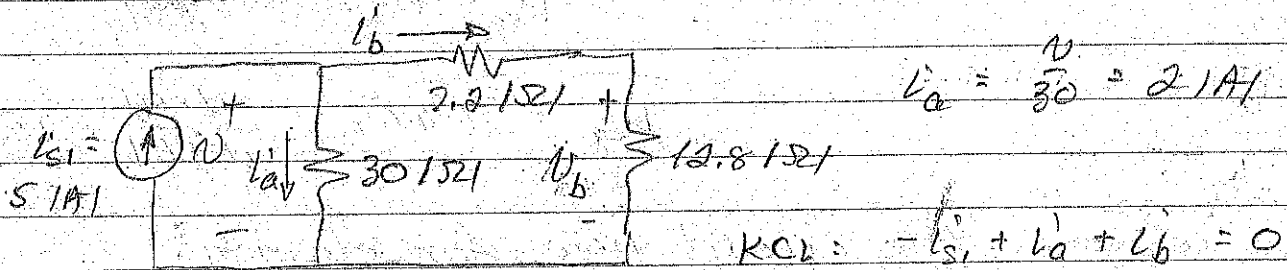 i_b
2.2 |Ω|
i_a = v/30 = 2 |A|
i_s1 =
5 |A|
+
v
-
i_a
30 |Ω|
+
v_b
-
12.8 |Ω|
KCL: -i_s1 + i_a + i_b = 0